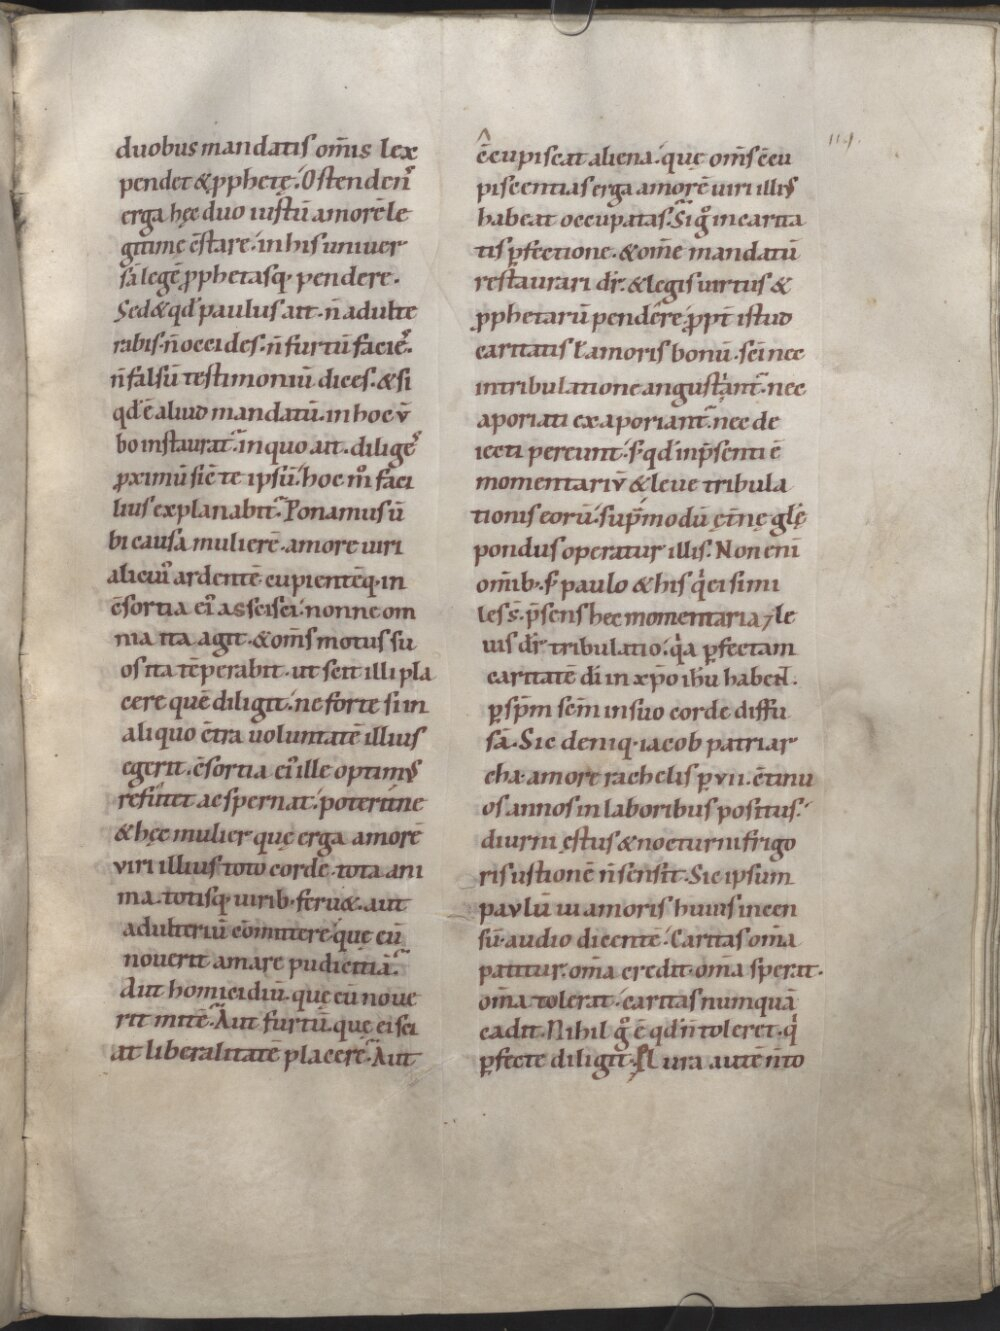 duobus mandatis om̄is lex
pendet & ꝓphetę. Ostendens̄
erga hęc duo iustū amorē le
gitime c̄stare. in his univer
sā legē ꝓphetasq· pendere.
Sed & qđ paulus ait. n̄ adulte
rabis. n̄ occides. n̄ furtū facies̄.
n̄ falsū testimoniū dices. & si
qđ ē aliud mandatū. in hoc v̄
bo instaurat᷑. in quo ait. diliges̄
ꝓximū sic̄ te ipsū. hoc m̊ faci
lius explanabit᷑. Ponamus ū
bi causa mulierē. amore uiri
alicui᷒ ardentē. cupientēq· in
c̄sortia ei᷒ ascisci. nonne om
nia ita agit. & om̄s motus su
os ita tēperabit. ut scit illi pla
cere quē diligit. ne forte si in
aliquo c̄tra uoluntatē illius
egerit. c̄sortia ei᷒ ille optim᷒
refutet ac spernat. poteritne
& hęc mulier quę erga amorē
viri illius toto corde. tota ani
ma. totisq· uirib· feru&. aut
adulteriū cōmittere quę eū
nouerit amare pudicitiā.
Aut homicidiū. quę eū noue
rit mitē. Aut furtū. quę ei sci
at liberalitatē placere. Aut
c̄cupiscat aliena. quę om̄s c̄cu
piscentias erga amorē uiri illi᷒
habeat occupatas. Si g̊ in carita
tis ꝑfectione. & om̄e mandatū
restaurari dr̄. & legis uirtus &
ꝓphetarū pendere. ꝓpt̄ istud
caritatis ł amoris bonū. sc̄i nec
in tribulatione angustiant᷑. nec
aporiati exaporiant᷑. nec de
iecti pereunt. s̄ qđ in p̄senti ē
momentariv̄ & leve tribula
tionis eorū. sup̄ modū ęt̄nę gl̄ę
pondus operatur illis. Non enī
om̄ib· s̄ paulo & his qͥ ei simi
les s̄. p̄sens hec momentaria ⁊ le
uis dr̄ tribulatio. qͥa ꝑfectam
caritatē dī in xp̄o ih̄u habent̄.
ꝑ sp̄m sc̄m in suo corde diffu
sā. Sic deniq· iacob patriar
cha. amore rachelis ꝑ vii. c̄tinu
os annos in laboribus positus.
diurni ęstus & nocturni frigo
ris ustionē n̄ sensit. Sic ipsum
pavlū ui amoris huius incen
sū. audio dicentē. Caritas om̄a
patitur. om̄a credit. om̄a sperat.
om̄a tolerat. caritas numquā
cadit. Nihil g̊ ē qđ n̄ toleret. qͥ
ꝑfecte diligit. Plura autē n̄ to